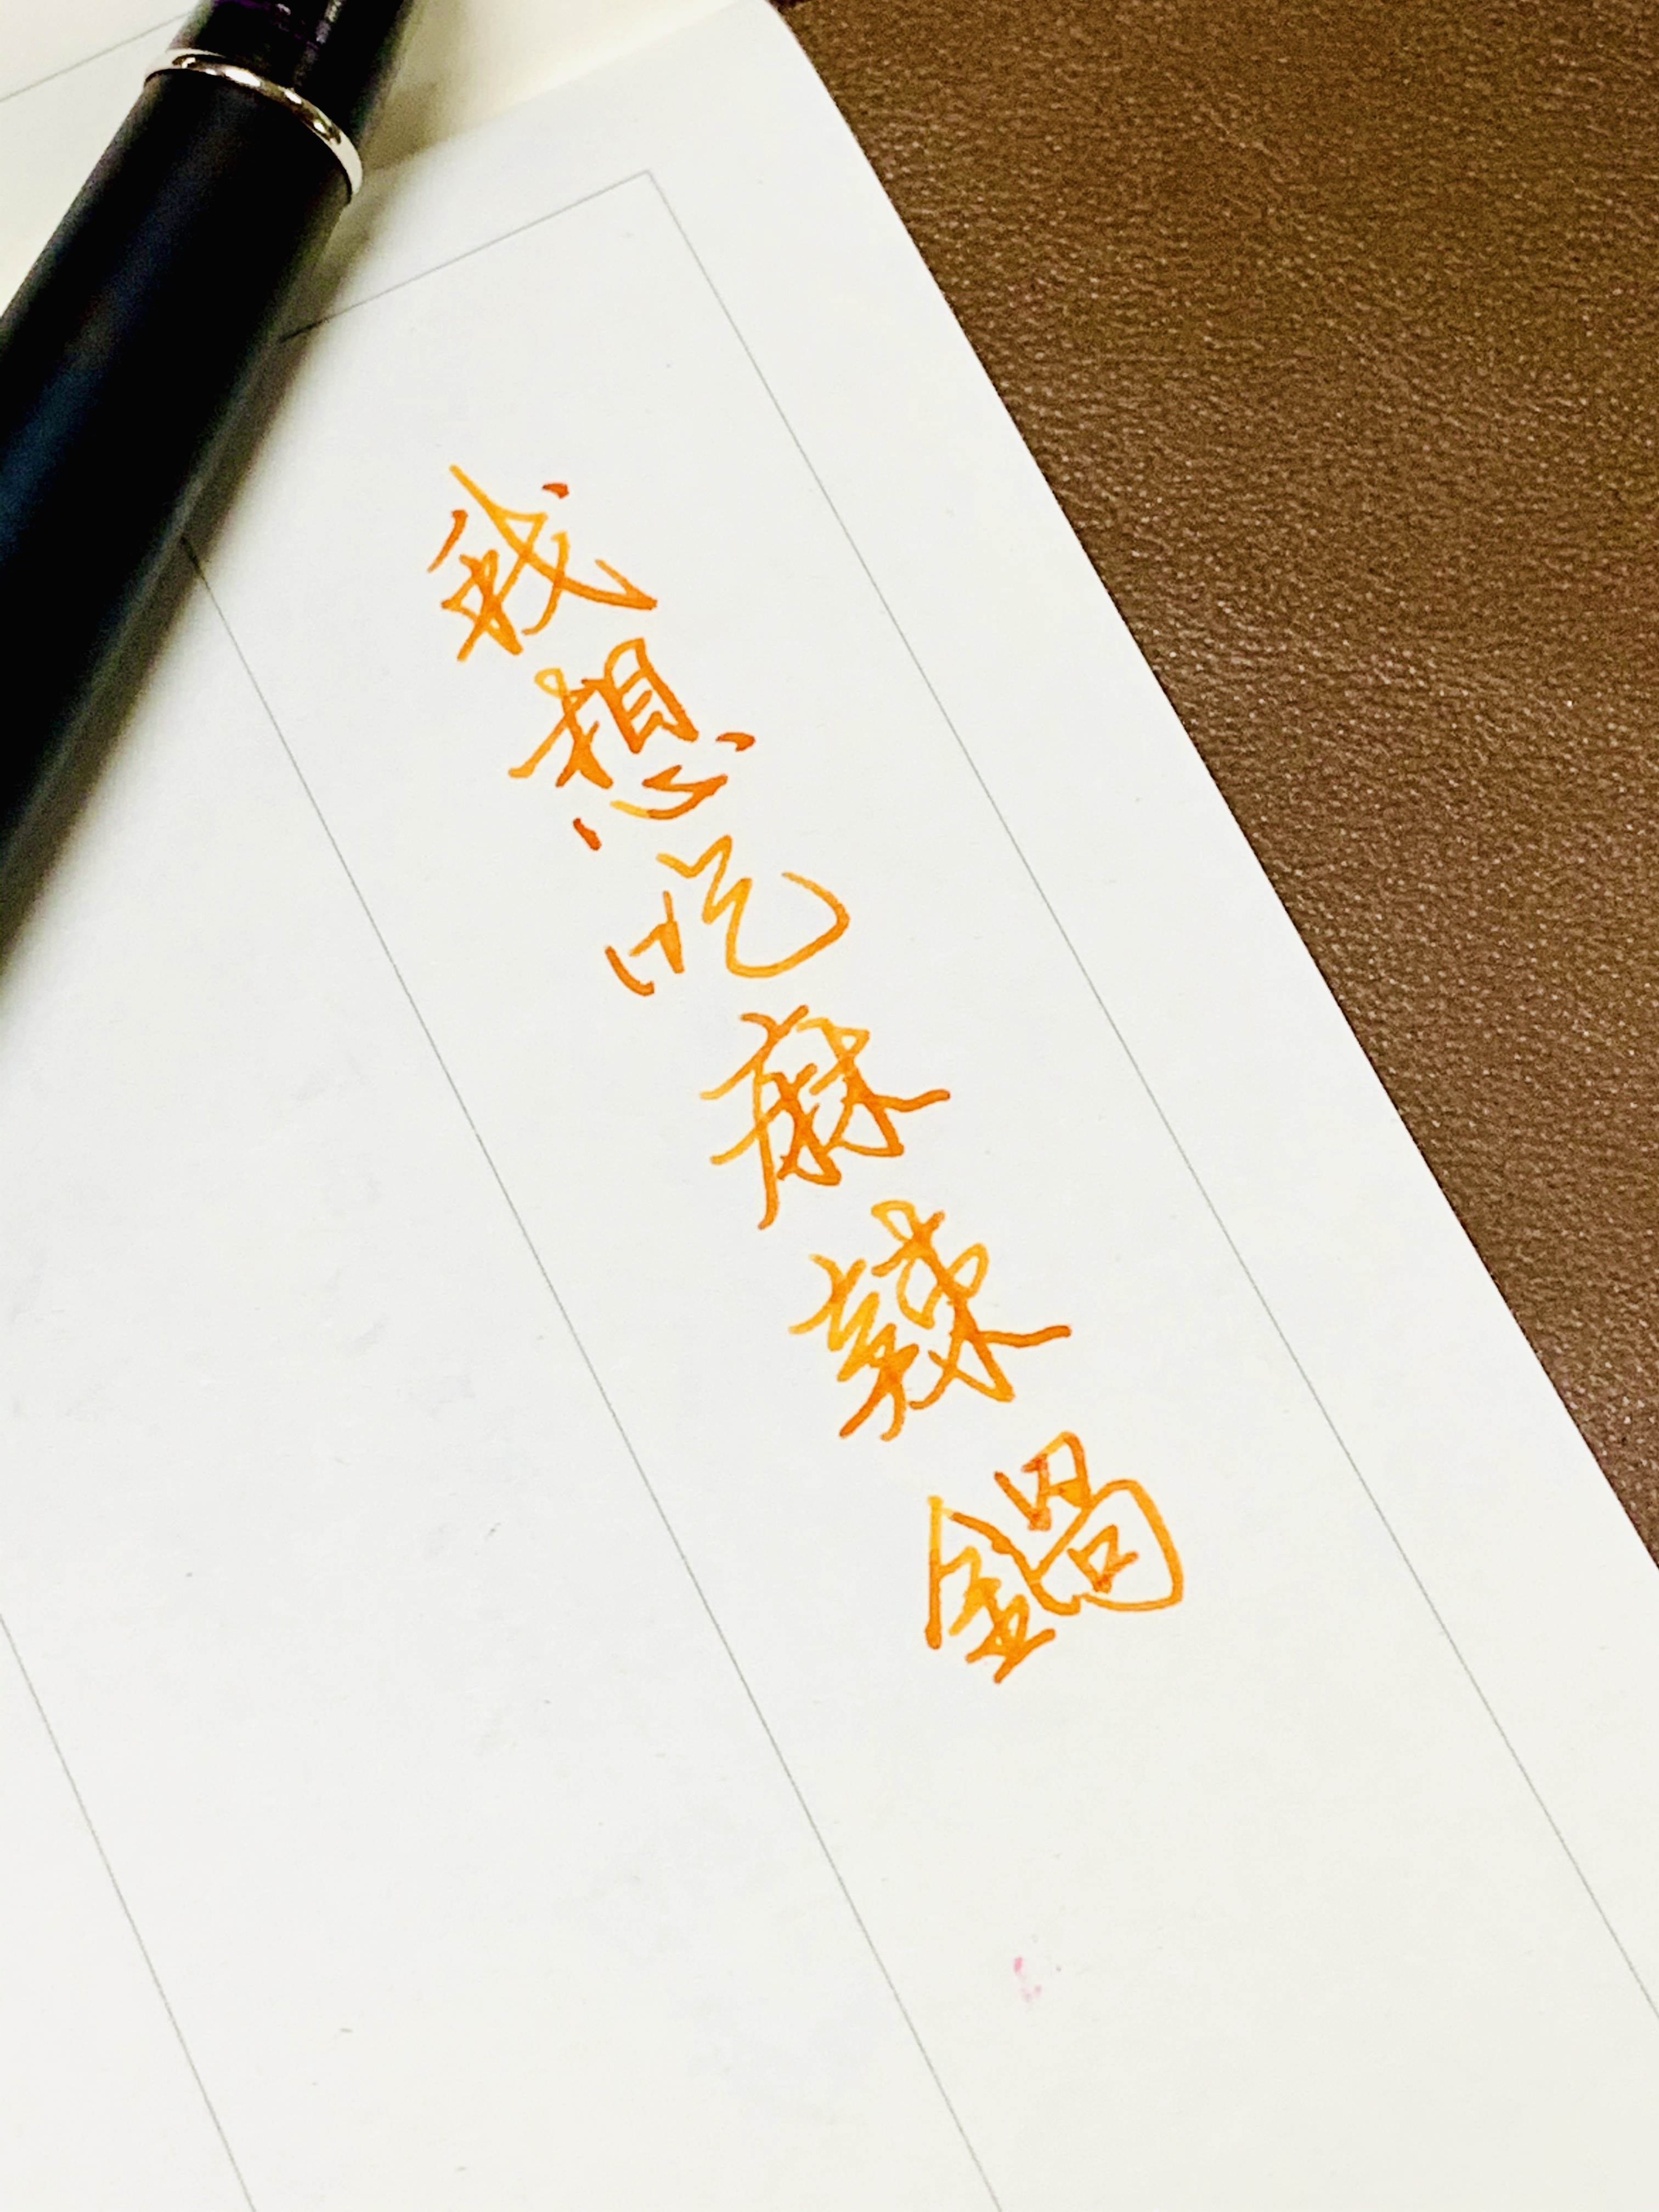 我想吃麻辣鍋